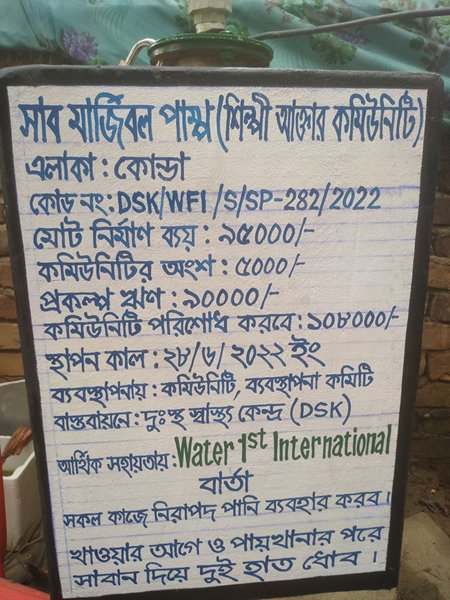 সাব মার্জিবল পাম্প (শিল্পী আক্তার কমিউনিটি)
এলাকা : কোন্ডা
কোড নং: DSK/WFI/S/SP-282/2022
মোট নির্মাণ ব্যয় : ৯৫০০০/-
কমিউনিটির অংশ : ৫০০০/-
প্রকল্প ঋণ : ৯০০০০/-
কমিউনিটি পরিশোধ করবে : ১০৮০০০/-
স্থাপন কাল : ২৮/৬/২০২২ ইং
ব্যবস্থাপনায় : কমিউনিটি, ব্যবস্থাপনা কমিটি
বাস্তবায়নে : দুঃস্থ স্বাস্থ্য কেন্দ্র (DSK)
আর্থিক সহায়তায় : Water 1st International
বার্তা
সকল কাজে নিরাপদ পানি ব্যবহার করব।
খাওয়ার আগে ও পায়খানার পরে
সাবান দিয়ে দুই হাত ধোব।